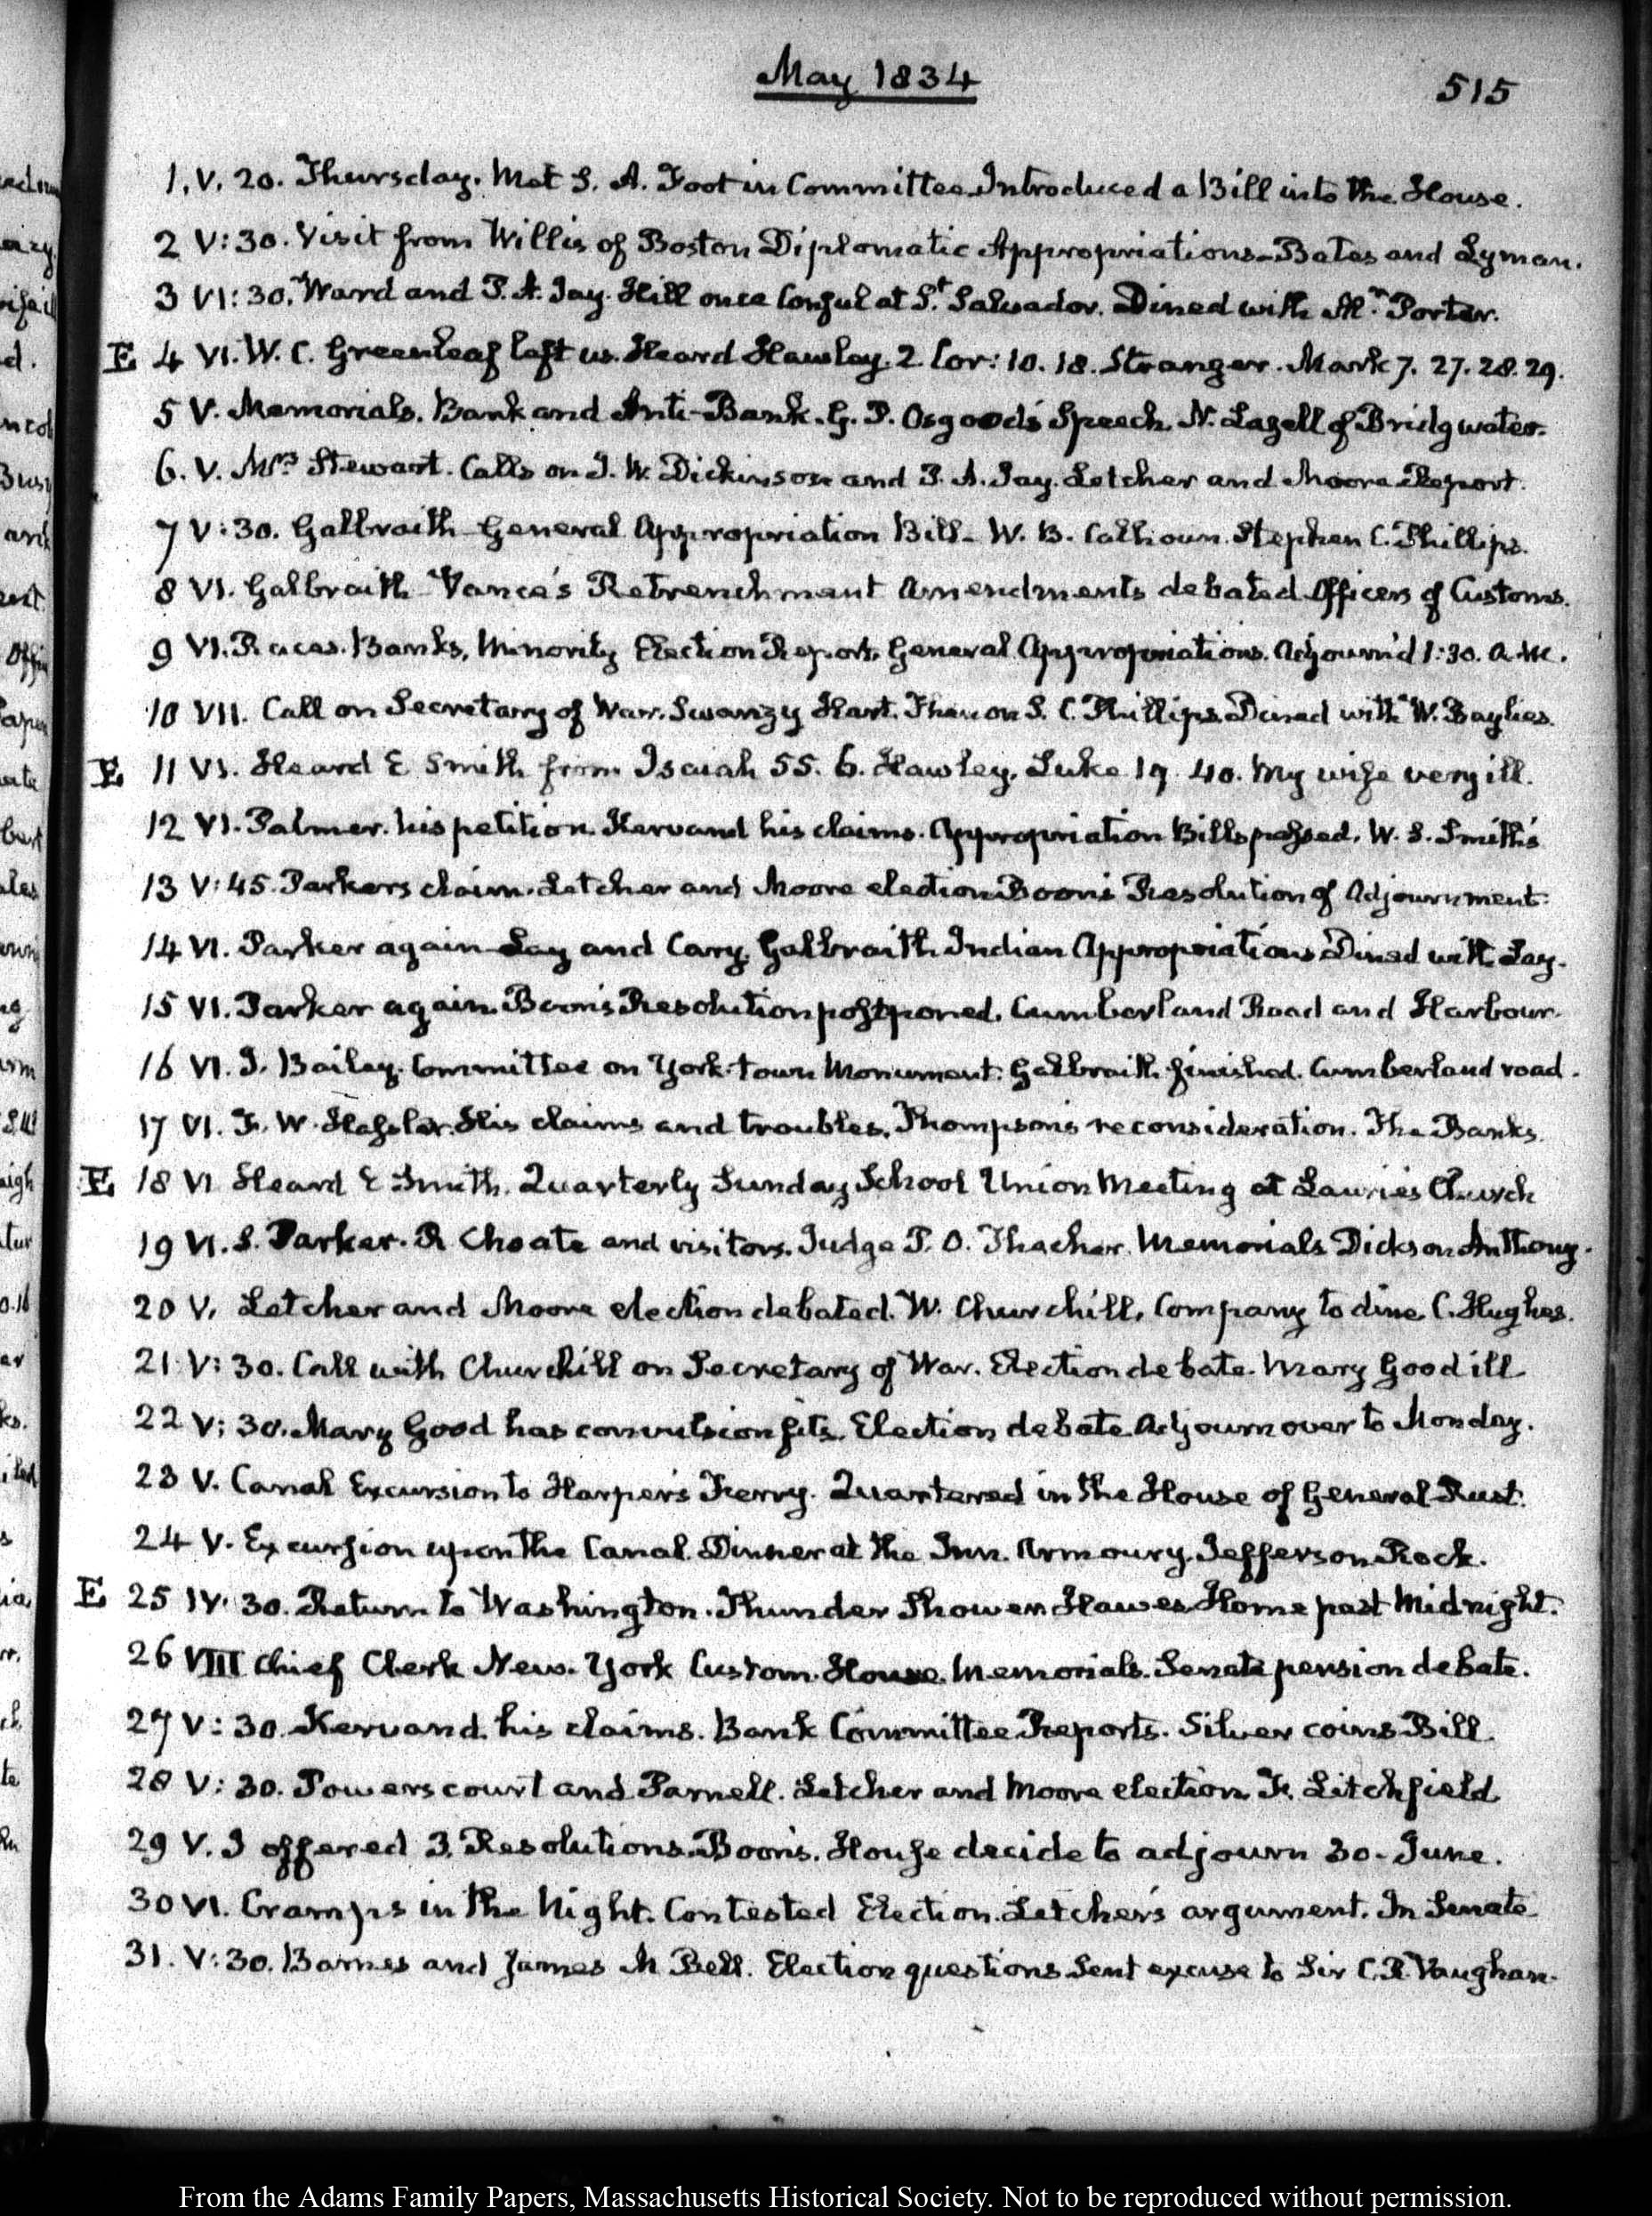 May 1834
515
1. V. 20. Thursday. Met S. A. Foot in Committee Introduced a Bill into the House.
2 V:30. Visit from Willis of Boston Diplomatic Appropriations—Bates and Lyman.
3 VI:30. Ward and P. A. Jay. Hill once Consul at St Salvador. Dined with Mr Porter.
E 4 VI. W. C. Greenleaf left us. Heard Hawley. 2 Cor: 10. 18. Stranger. Mark 7. 27. 28. 29.
5 V. Memorials. Bank and Anti-Bank. G. P. Osgood's Speech. N. Lazell of Bridgwater.
6. V. Mrs Stewart. Calls on J. W. Dickinson and P. A. Jay. Letcher and Moore Report.
7 V:30. Galbraith General Appropriation Bill— W. B. Calhoun. Stephen C. Phillips.
8 VI. Galbraith Vance's Retrenchment Amendments debated. Officers of Customs.
9 VI. Races. Banks, Minority Election Report. General Appropriations. Adjourn'd 1:30. A.M.
10 VII. Call on Secretary of War. Swanzy Hart. Then on S. C. Phillips. Dined with W. Baylies.
E 11 VI. Heard E Smith from Isaiah 55. 6. Hawley. Luke 19. 40. My wife very ill.
12 VI. Palmer. his petition. Kervand his claims. Appropriation Bills passed. W. S. Smith's
13 V:45. Parkers claim. Letcher and Moore election Boon's Resolution of Adjournment.
14 VI. Parker again—Lay and Cary. Galbraith. Indian Appropriations Dined with Lay.
15 VI. Parker again. Boon's Resolution postponed. Cumberland Road and Harbour.
16 VI. J. Bailey. Committee on York-town Monument. Galbraith finished. Cumberland road.
17 VI. F. W. Hassler. His claims and troubles. Thompson's reconsideration. The Banks.
E 18 VI Heard E Smith. Quarterly Sunday School Union Meeting at Lauries Church
19 VI. S. Parker. R Choate and visitors. Judge P. O. Thacher. Memorials Dickson Anthony.
20 V. Letcher and Moore election debated. W. Churchill. Company to dine. C. Hughes.
21 V:30. Call with Churchill on Secretary of War. Election debate. Mary Good ill
22 V:30. Mary Good has convulsion fits. Election debate. Adjourn over to Monday.
23 V. Canal Excursion to Harper's Ferry. Quartered in the House of General Rust.
24 V. Excursion upon the Canal. Dinner at the Inn. Armoury. Jefferson Rock.
E 25 IV. 30. Return to Washington. Thunder Shower Hawes Home past Midnight.
26 VIII Chief Clerk New-York Custom-House. Memorials. Senate pension debate.
27 V:30. Kervand. his claims. Bank Committee Reports. Silver coins Bill.
28 V:30. Powerscourt and Parnell. Letcher and Moore election. F. Litchfield
29 V. I offered 3. Resolutions. Boon's. House decide to adjourn 30. June.
30 VI. Cramps in the Night. Contested Election. Letcher's argument. In Senate
31. V:30. Barnes and James M Bell. Election questions Sent excuse to Sir C. R. Vaughan.
From the Adams Family Papers, Massachusetts Historical Society. Not to be reproduced without permission.